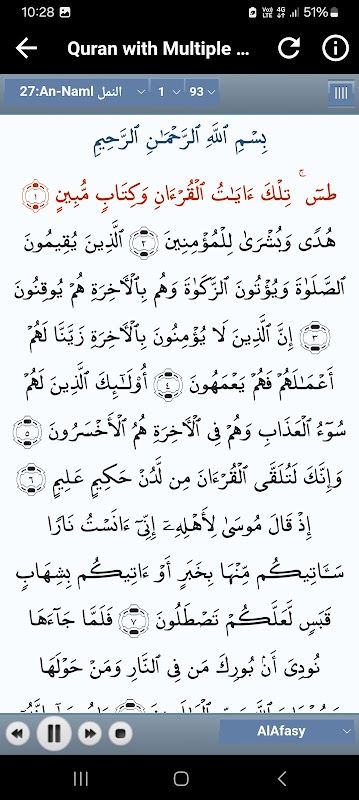 10:28
51%
Quran with Multiple ...
27:An-Naml النمل 1 93
بِسْمِ ٱللَّهِ ٱلرَّحْمَـٰنِ ٱلرَّحِيمِ
طسٓ ۚ تِلْكَ ءَايَـٰتُ ٱلْقُرْءَانِ وَكِتَابٍ مُّبِينٍ ١
هُدًى وَبُشْرَىٰ لِلْمُؤْمِنِينَ ٢ ٱلَّذِينَ يُقِيمُونَ
ٱلصَّلَوٰةَ وَيُؤْتُونَ ٱلزَّكَوٰةَ وَهُم بِٱلْـَٔاخِرَةِ هُمْ يُوقِنُونَ
٣ إِنَّ ٱلَّذِينَ لَا يُؤْمِنُونَ بِٱلْـَٔاخِرَةِ زَيَّنَّا لَهُمْ
أَعْمَـٰلَهُمْ فَهُمْ يَعْمَهُونَ ٤ أُو۟لَـٰٓئِكَ ٱلَّذِينَ لَهُمْ
سُوٓءُ ٱلْعَذَابِ وَهُمْ فِى ٱلْـَٔاخِرَةِ هُمُ ٱلْأَخْسَرُونَ ٥
وَإِنَّكَ لَتُلَقَّى ٱلْقُرْءَانَ مِن لَّدُنْ حَكِيمٍ عَلِيمٍ ٦
إِذْ قَالَ مُوسَىٰ لِأَهْلِهِۦٓ إِنِّىٓ ءَانَسْتُ نَارًا
سَـَٔاتِيكُم مِّنْهَا بِخَبَرٍ أَوْ ءَاتِيكُم بِشِهَابٍ
قَبَسٍ لَّعَلَّكُمْ تَصْطَلُونَ ٧ فَلَمَّا جَآءَهَا
نُودِىَ أَنۢ بُورِكَ مَن فِى ٱلنَّارِ وَمَنْ حَوْلَهَا
AlAfasy